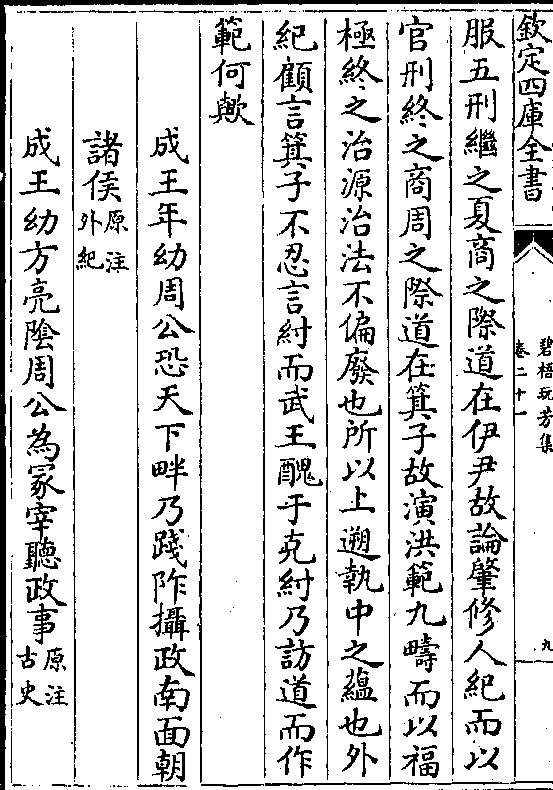 欽定四庫全書
碧梧玩芳集
卷二十一
九
服五刑繼之夏商之際道在伊尹故論肇修人紀而以
官刑終之商周之際道在箕子故演洪範九疇而以福
極終之治源治法不偏廢也所以上遡執中之蘊也外
紀顧言箕子不忍言紂而武王醜于克紂乃訪道而作
範何歟
成王年幼周公恐天下畔乃踐阼攝政南面朝
諸侯原注外紀
成王幼方亮陰周公為冢宰聽政事原注古史